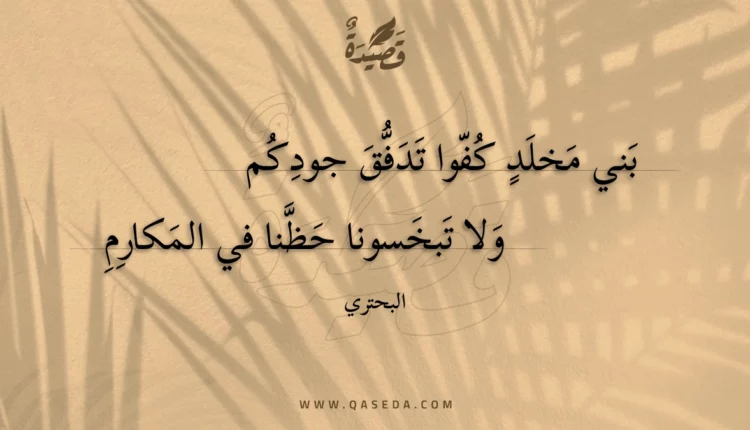 قَصِيْدَةٌ
بَني مَخلَدٍ كُفّوا تَدَفُّقَ جودِكُم
وَلا تَبخَسونا حَظَّنا في المَكارِمِ
البحتري
WWW.QASEDA.COM